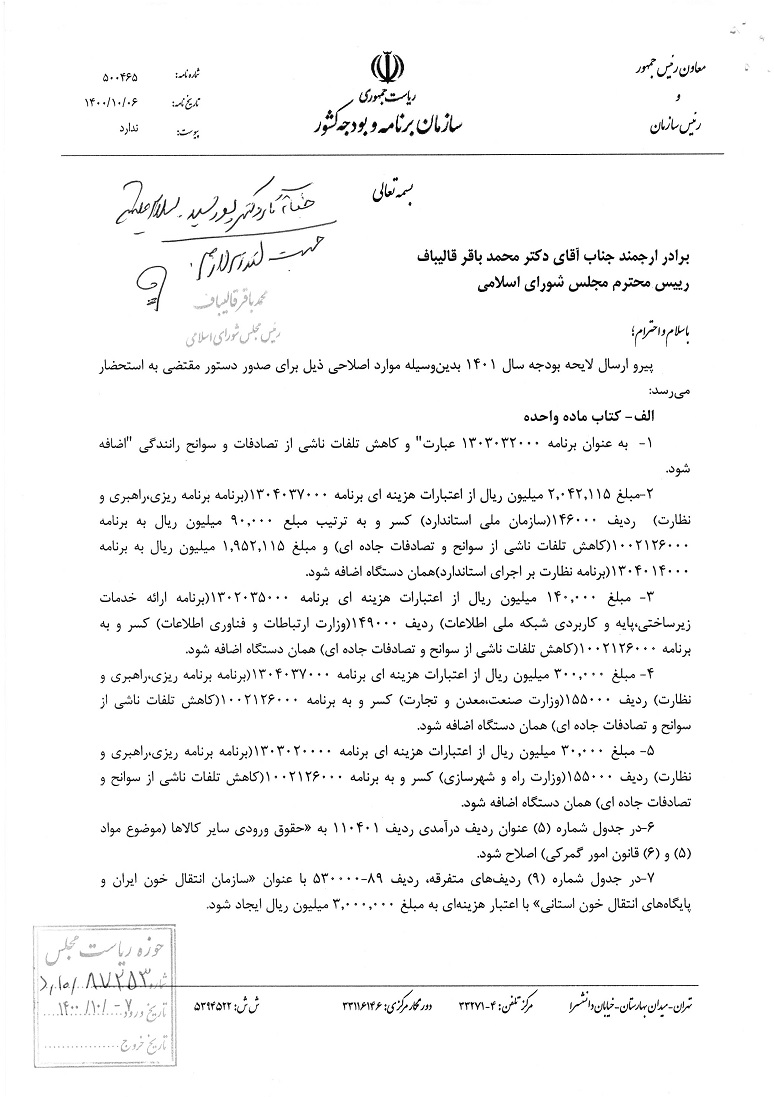 معاون رئیس جمهور
و
رئیس سازمان
ریاست جمهوری
سازمان برنامه و بودجه کشور
شماره نامه: ۵۰۰۴۶۵
تاریخ نامه: ۱۴۰۰/۱۰/۰۶
پیوست: ندارد
بسمه تعالی
جهت اقدام لازم.
محمدباقر قالیباف
رئیس مجلس شورای اسلامی
برادر ارجمند جناب آقای دکتر محمد باقر قالیباف
رییس محترم مجلس شورای اسلامی
باسلام و احترام؛
پیرو ارسال لایحه بودجه سال ۱۴۰۱ بدین‌وسیله موارد اصلاحی ذیل برای صدور دستور مقتضی به استحضار
می‌رسد:
الف- کتاب ماده واحده
۱- به عنوان برنامه ۱۳۰۳۰۳۲۰۰۰ عبارت" و کاهش تلفات ناشی از تصادفات و سوانح رانندگی "اضافه
شود.
۲-مبلغ ۲,۰۴۲,۱۱۵ میلیون ریال از اعتبارات هزینه ای برنامه ۱۳۰۴۰۳۷۰۰۰(برنامه برنامه ریزی،راهبری و
نظارت) ردیف ۱۴۶۰۰۰(سازمان ملی استاندارد) کسر و به ترتیب مبلغ ۹۰,۰۰۰ میلیون ریال به برنامه
۱۰۰۲۱۲۶۰۰۰(کاهش تلفات ناشی از سوانح و تصادفات جاده ای) و مبلغ ۱,۹۵۲,۱۱۵ میلیون ریال به برنامه
۱۳۰۴۰۱۴۰۰۰(برنامه نظارت بر اجرای استاندارد)همان دستگاه اضافه شود.
۳- مبلغ ۱۴۰,۰۰۰ میلیون ریال از اعتبارات هزینه ای برنامه ۱۳۰۲۰۳۵۰۰۰(برنامه ارائه خدمات
زیرساختی،پایه و کاربردی شبکه ملی اطلاعات) ردیف ۱۴۹۰۰۰(وزارت ارتباطات و فناوری اطلاعات) کسر و به
برنامه ۱۰۰۲۱۲۶۰۰۰(کاهش تلفات ناشی از سوانح و تصادفات جاده ای) همان دستگاه اضافه شود.
۴- مبلغ ۳۰۰,۰۰۰ میلیون ریال از اعتبارات هزینه ای برنامه ۱۳۰۴۰۳۷۰۰۰(برنامه برنامه ریزی،راهبری و
نظارت) ردیف ۱۵۵۰۰۰(وزارت صنعت،معدن و تجارت) کسر و به برنامه ۱۰۰۲۱۲۶۰۰۰(کاهش تلفات ناشی از
سوانح و تصادفات جاده ای) همان دستگاه اضافه شود.
۵- مبلغ ۳۰,۰۰۰ میلیون ریال از اعتبارات هزینه ای برنامه ۱۳۰۳۰۲۰۰۰۰(برنامه برنامه ریزی،راهبری و
نظارت) ردیف ۱۵۵۰۰۰(وزارت راه و شهرسازی) کسر و به برنامه ۱۰۰۲۱۲۶۰۰۰(کاهش تلفات ناشی از سوانح و
تصادفات جاده ای) همان دستگاه اضافه شود.
۶-در جدول شماره (۵) عنوان ردیف درآمدی ردیف ۱۱۰۴۰۱ به «حقوق ورودی سایر کالاها (موضوع مواد
(۵) و (۶) قانون امور گمرکی) اصلاح شود.
۷-در جدول شماره (۹) ردیف‌های متفرقه، ردیف ۸۹-۵۳۰۰۰۰ با عنوان «سازمان انتقال خون ایران و
پایگاه‌های انتقال خون استانی» با اعتبار هزینه‌ای به مبلغ ۳,۰۰۰,۰۰۰ میلیون ریال ایجاد شود.
حوزه ریاست مجلس
شماره ۸۷۲۵۳
تاریخ ورود ۱۴۰۰/۱۰/۰۷
تاریخ خروج
تهران-میدان بهارستان-خیابان دانشسرا مرکز تلفن: ۴-۳۳۲۷۱ دورنگار مرکزی: ۳۳۱۱۶۱۴۶ ش ش: ۵۳۹۴۵۲۲